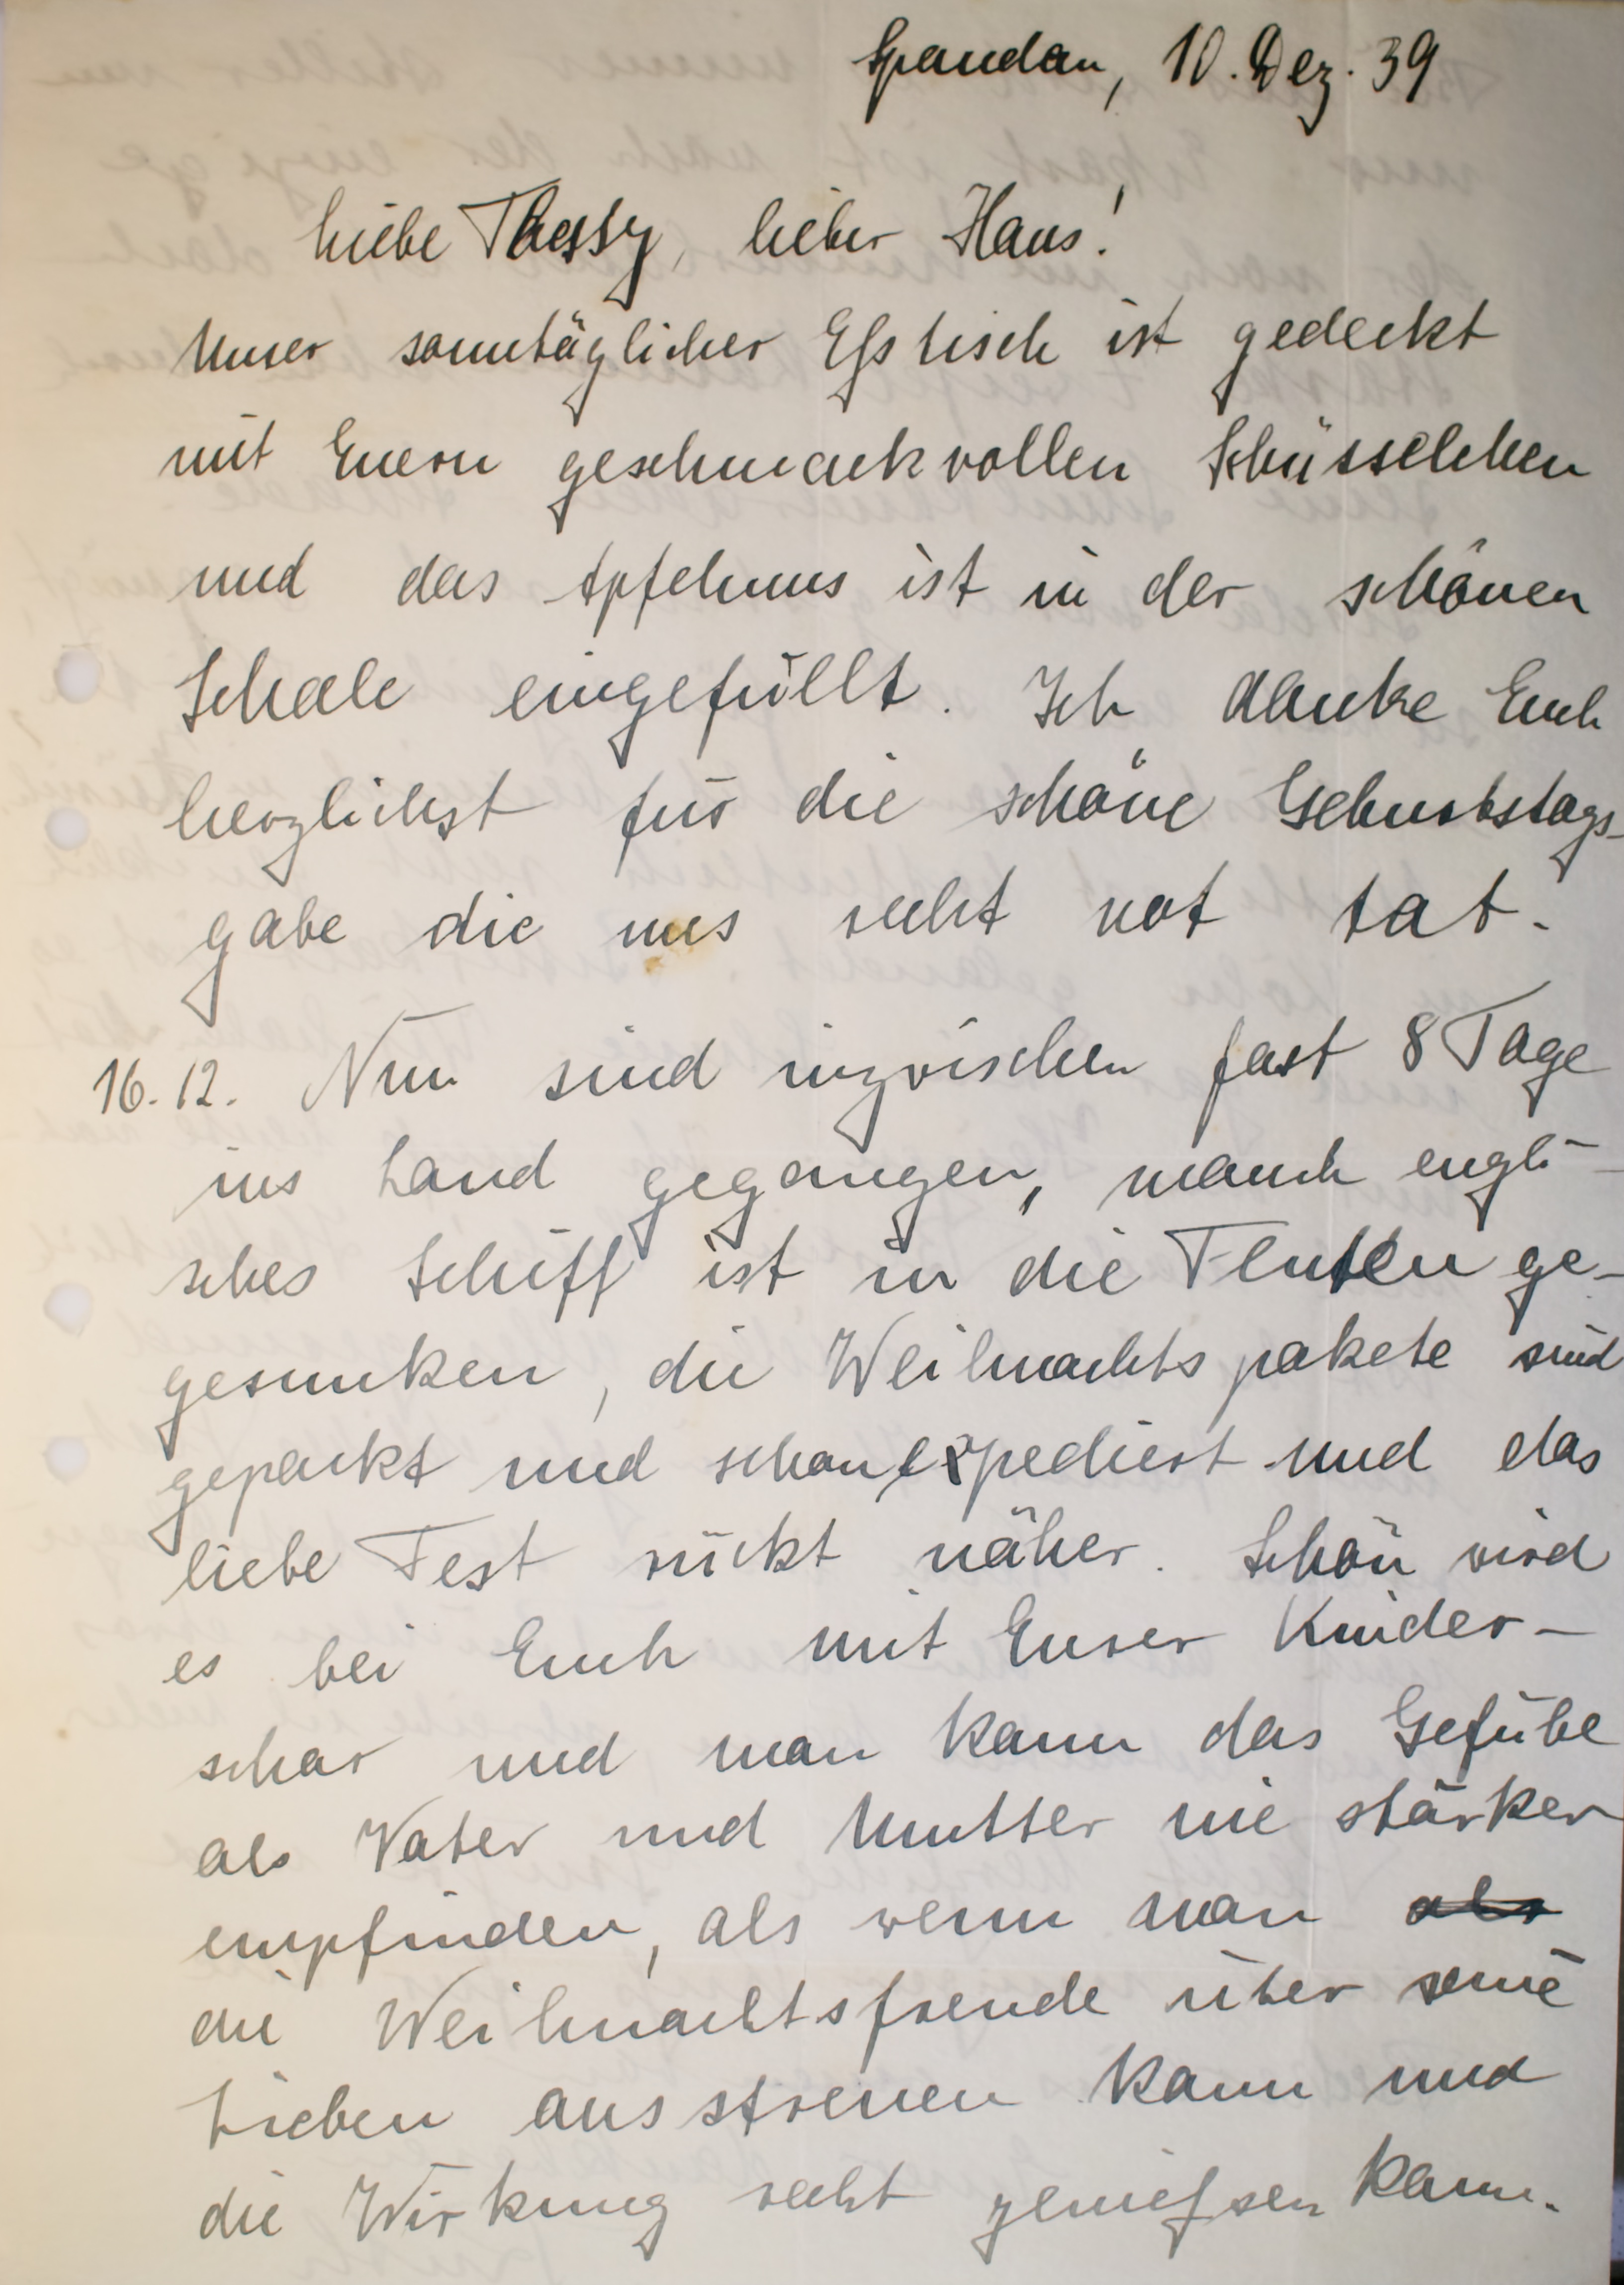 Spandau, 10. Dez. 39
Liebe Thessy, lieber Hans!
Unser sonntäglicher Eßtisch ist gedeckt
mit Euern geschmackvollen Schüsselchen
und das Apfelmus ist in der schönen
Schale eingefüllt. Ich danke Euch
herzlichst für die schöne Geburtstags-
gabe die uns recht not tat.
16.12. Nun sind inzwischen fast 8 Tage
ins Land gegangen, manch engli-
sches Schiff ist in die Fluten ge-
gesunken, die Weihnachtspakete sind
gepackt und schon expediert und das
liebe Fest rückt näher. Schön wird
es bei Euch mit Eurer Kinder-
schar und man kann das Gefühl
als Vater und Mutter nie stärker
empfinden, als wenn man als
die Weihnachtsfreude über seine
Lieben ausstreuen kann und
die Wirkung recht genießen kann.